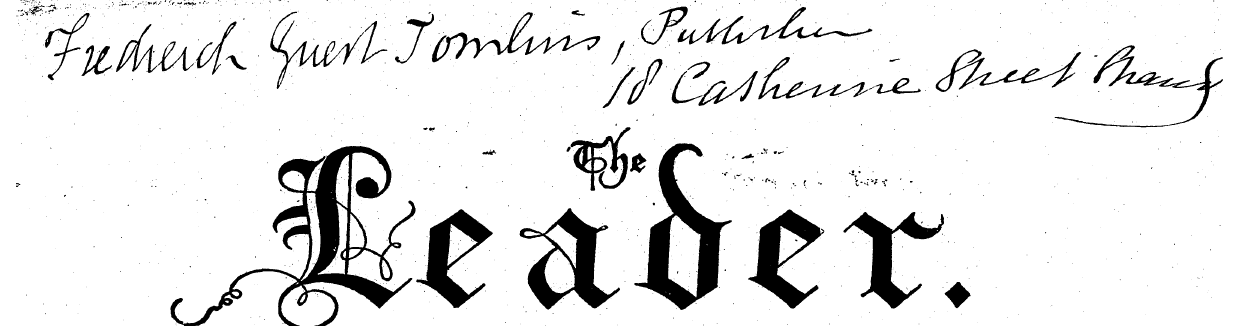 Frederick Guest Tomlins, Publisher
18 Catherine Street Strand
The
Leader.